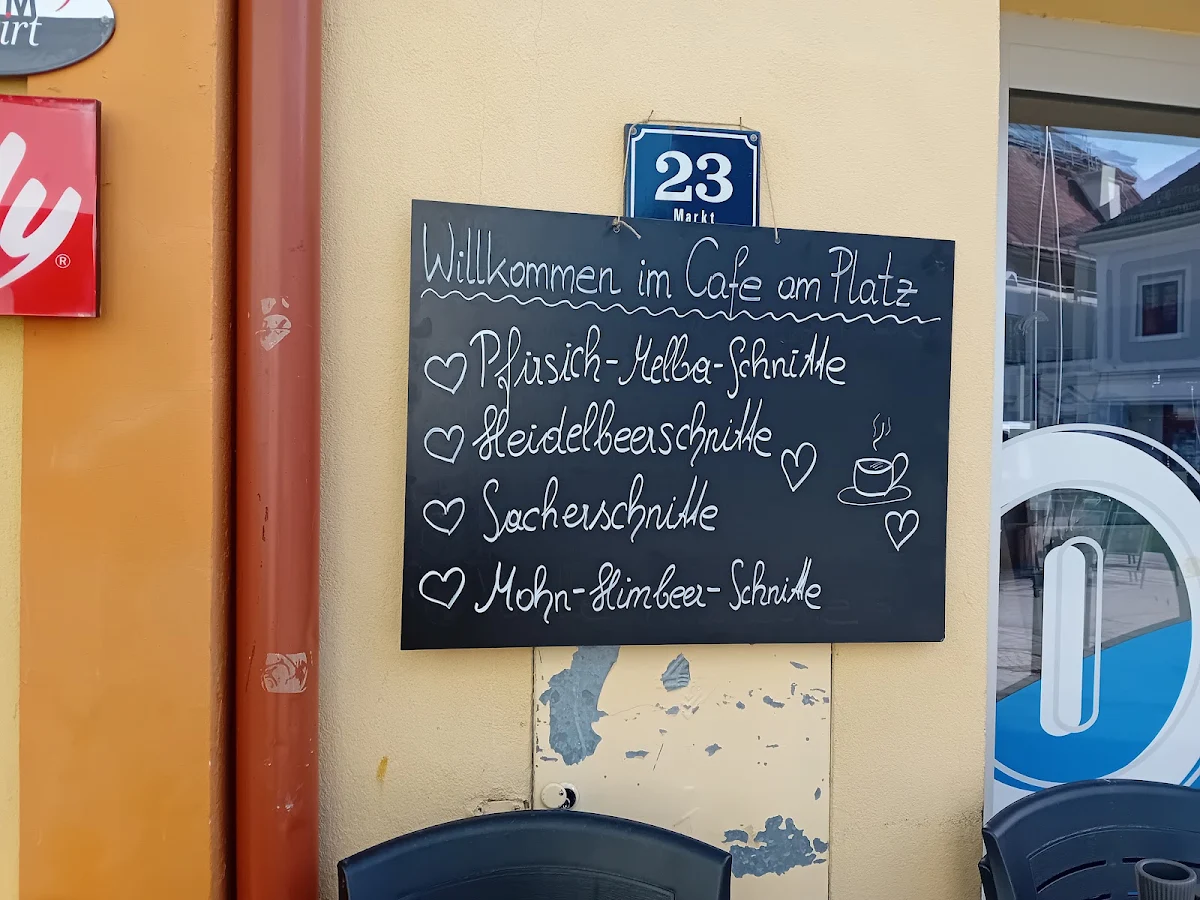 irt
ly
®
23
Markt
Willkommen im Cafe am Platz
Pfirsich-Melba-Schnitte
Heidelbeerschnitte
Sacherschnitte
Mohn-Himbeer-Schnitte